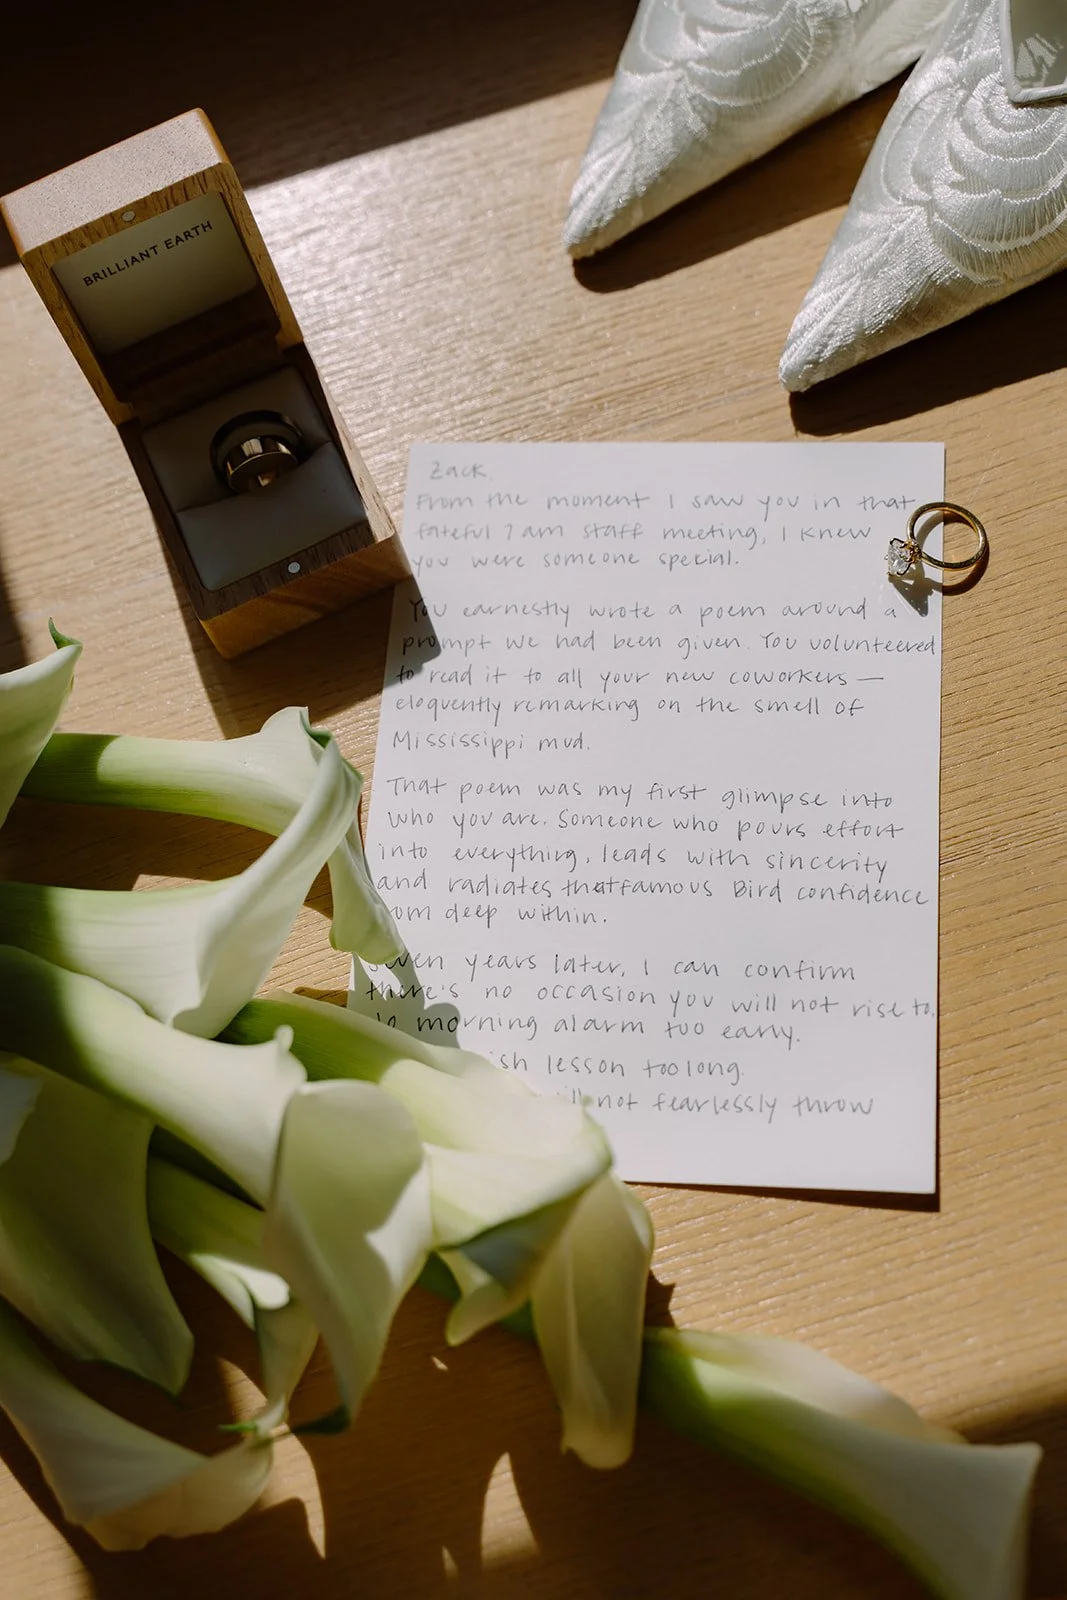 BRILLIANT EARTH
Zack,
From the moment I saw you in that
fateful 7am staff meeting, I knew
you were someone special.
You earnestly wrote a poem around a
prompt we had been given. You volunteered
to read it to all your new coworkers —
eloquently remarking on the smell of
Mississippi mud.
That poem was my first glimpse into
who you are. Someone who pours effort
into everything, leads with sincerity
and radiates that famous Bird confidence
from deep within.
Seven years later, I can confirm
there's no occasion you will not rise to.
No morning alarm too early.
lesson too long.
not fearlessly throw